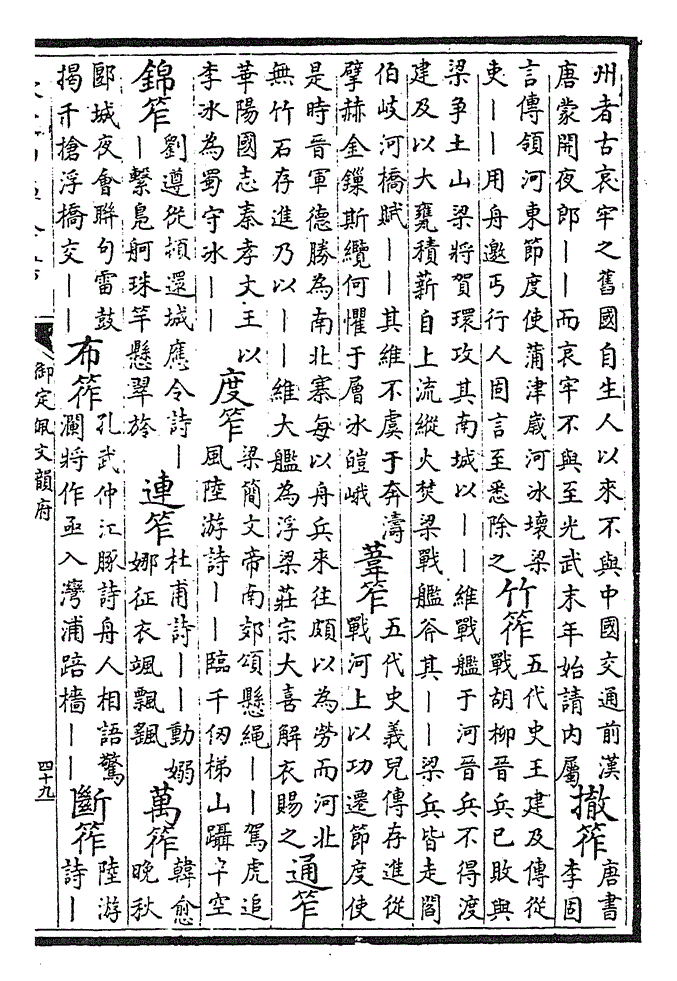 州者古哀牢之舊國自生人以來不與中國交通前漢
唐蒙開夜郎——而哀牢不與至光武末年始請內屬
撤筰
唐書
李固
言傳領河東節度使蒲津歲河冰壞梁
吏——用舟邀丐行人固言至悉除之
竹筰
五代史王建及傳從
戰胡柳晉兵已敗與
梁爭土山梁將賀環攻其南城以——維戰艦于河晉兵不得渡
建及以大甕積薪自上流縱火焚梁戰艦斧其——梁兵皆走閻
伯岐河橋賦——其維不虞于奔濤
擘赫金鏁斯纜何懼于層冰皚峨
葦笮
五代史義兒傳存進從
戰河上以功遷節度使
是時晉軍德勝為南北寨每以舟兵來往頗以為勞而河北
無竹石存進乃以——維大艦為浮梁莊宗大喜解衣賜之
通笮
華陽國志秦孝文王以
李冰為蜀守冰——
度笮
梁簡文帝南郊頌懸繩——駕虎追
風陸游詩——臨千仞梯山躡半空
錦笮
劉遵從頓還城應令詩—
—繫鳧舸珠竿懸翠旍
連笮
杜甫詩——動嫋
娜征衣颯飄颻
萬筰
韓愈
晚秋
郾城夜會聯句雷鼓
揭千槍浮橋交——
布筰
孔武仲江豚詩舟人相語驚
瀾將作亟入灣浦踣檣——
斷筰
陸游
詩—
御定佩文韻府
四十九